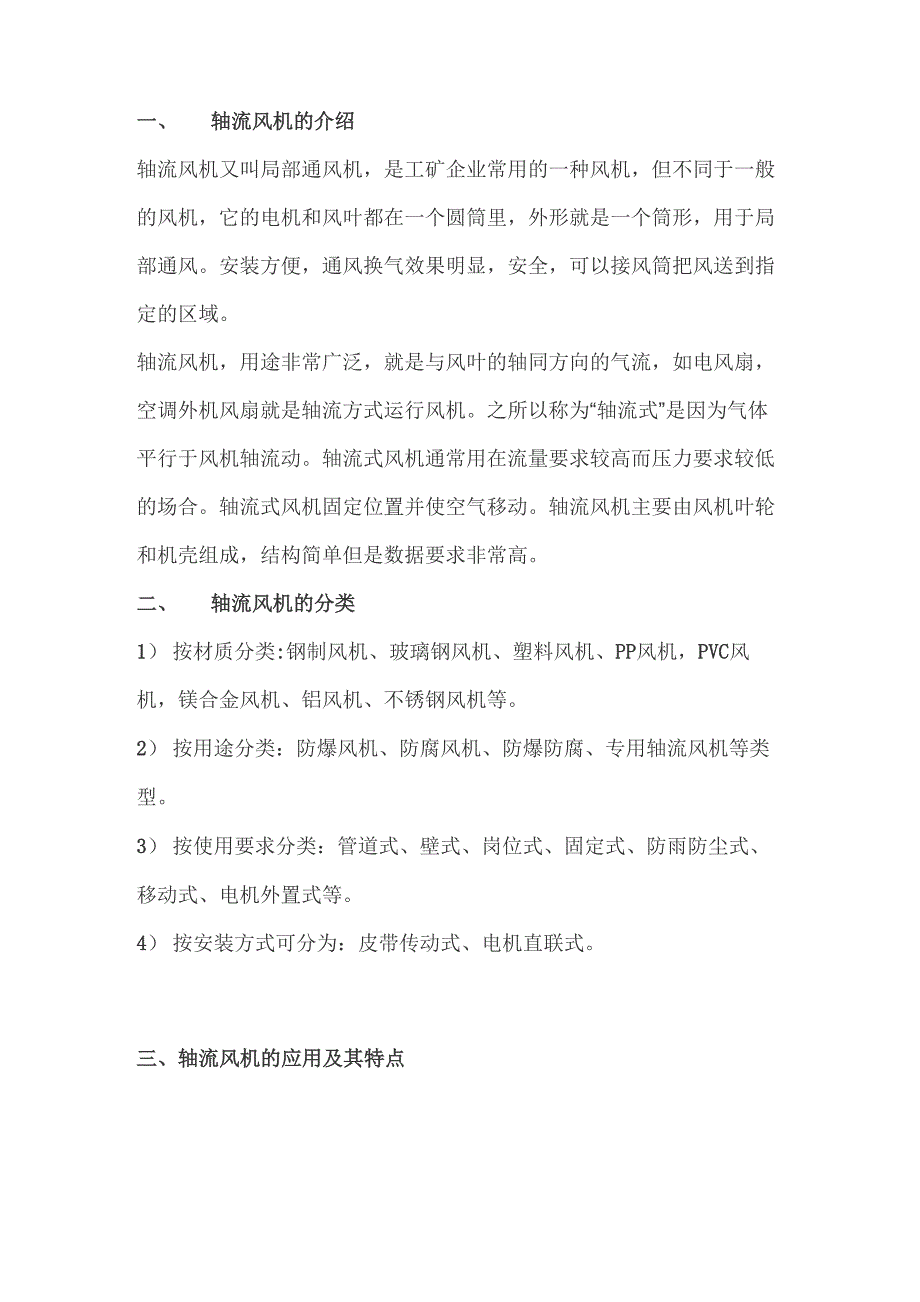 一、 轴流风机的介绍
轴流风机又叫局部通风机，是工矿企业常用的一种风机，但不同于一般
的风机，它的电机和风叶都在一个圆筒里，外形就是一个筒形，用于局
部通风。安装方便，通风换气效果明显，安全，可以接风筒把风送到指
定的区域。
轴流风机，用途非常广泛，就是与风叶的轴同方向的气流，如电风扇，
空调外机风扇就是轴流方式运行风机。之所以称为“轴流式”是因为气体
平行于风机轴流动。轴流式风机通常用在流量要求较高而压力要求较低
的场合。轴流式风机固定位置并使空气移动。轴流风机主要由风机叶轮
和机壳组成，结构简单但是数据要求非常高。
二、 轴流风机的分类
1） 按材质分类:钢制风机、玻璃钢风机、塑料风机、PP风机，PVC风
机，镁合金风机、铝风机、不锈钢风机等。
2） 按用途分类：防爆风机、防腐风机、防爆防腐、专用轴流风机等类
型。
3） 按使用要求分类：管道式、壁式、岗位式、固定式、防雨防尘式、
移动式、电机外置式等。
4） 按安装方式可分为：皮带传动式、电机直联式。
三、轴流风机的应用及其特点